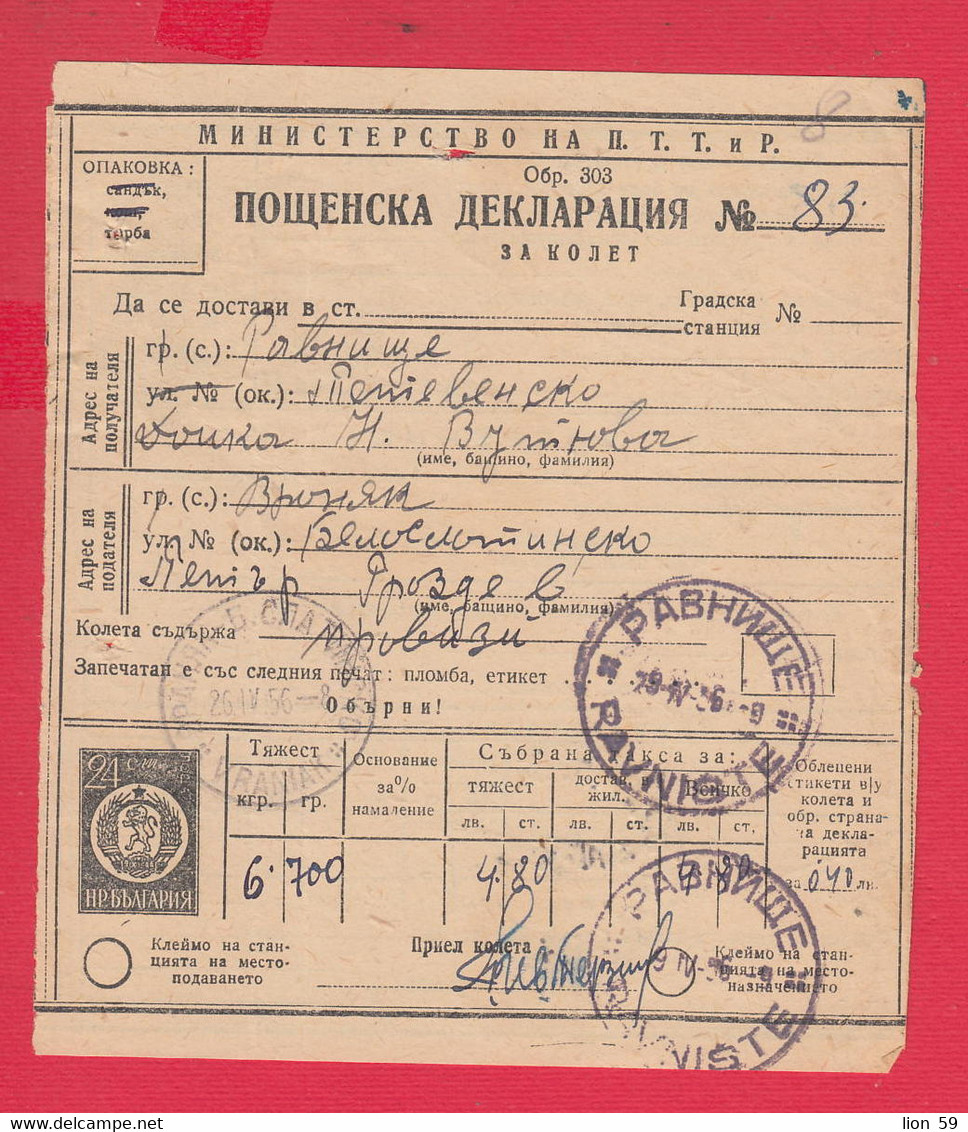 8
МИНИСТЕРСТВО НА П. Т. Т. и Р.
ОПАКОВКА :
сандък,
торба
Обр. 303
ПОЩЕНСКА ДЕКЛАРАЦИЯ № 83.
ЗА КОЛЕТ
Да се достави в ст. Градска станция №
Адрес на получателя
гр. (с.): Равнище
ул. № (ок.): Тетевенско
Донка Н. Вутова
(име, бащино, фамилия)
Адрес на подателя
гр. (с.): Враняк
ул. № (ок.): Белослатинско
Петър Гроздев
(име, бащино, фамилия)
Колета съдържа провизи
Запечатан е със следния печат : пломба, етикет
Обърни!
26 IV 56 – 8
VRANIAK
РАВНИЩЕ
RAVNISTE
24 ст.
НР БЪЛГАРИЯ
Тяжест
кгр. гр.
Основание за % намаление
Събрана такса за:
тяжест
достав. в жил.
Всичко
лв. ст. лв. ст. лв. ст.
Облепени етикети в/у колета и обр. страна на декларацията
6. 700 4. 80 4. 80. за 040 лв.
Клеймо на станцията на местоподаването
Приел колета
Клеймо на станцията на местоназначението
РАВНИЩЕ
RAVNISTE
lion 59